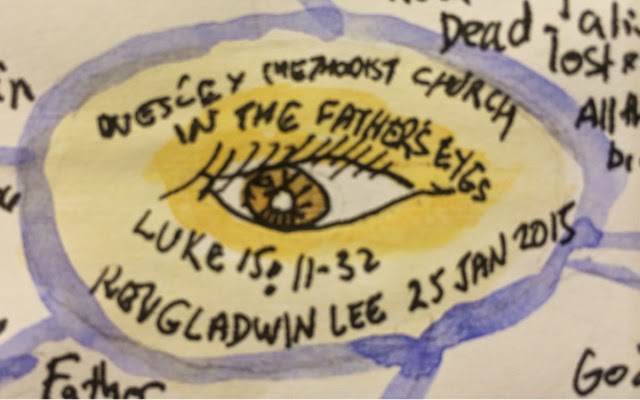 Dead
alive
lost &
All th
WESLEY METHODIST CHURCH
IN THE FATHER'S EYES
LUKE 15: 11-32
REV GLADWIN LEE 25 JAN 2015
Father
God